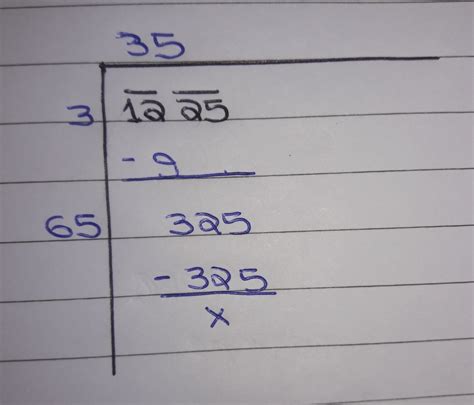 35
3 12 25
- 9
65 325
- 325
x